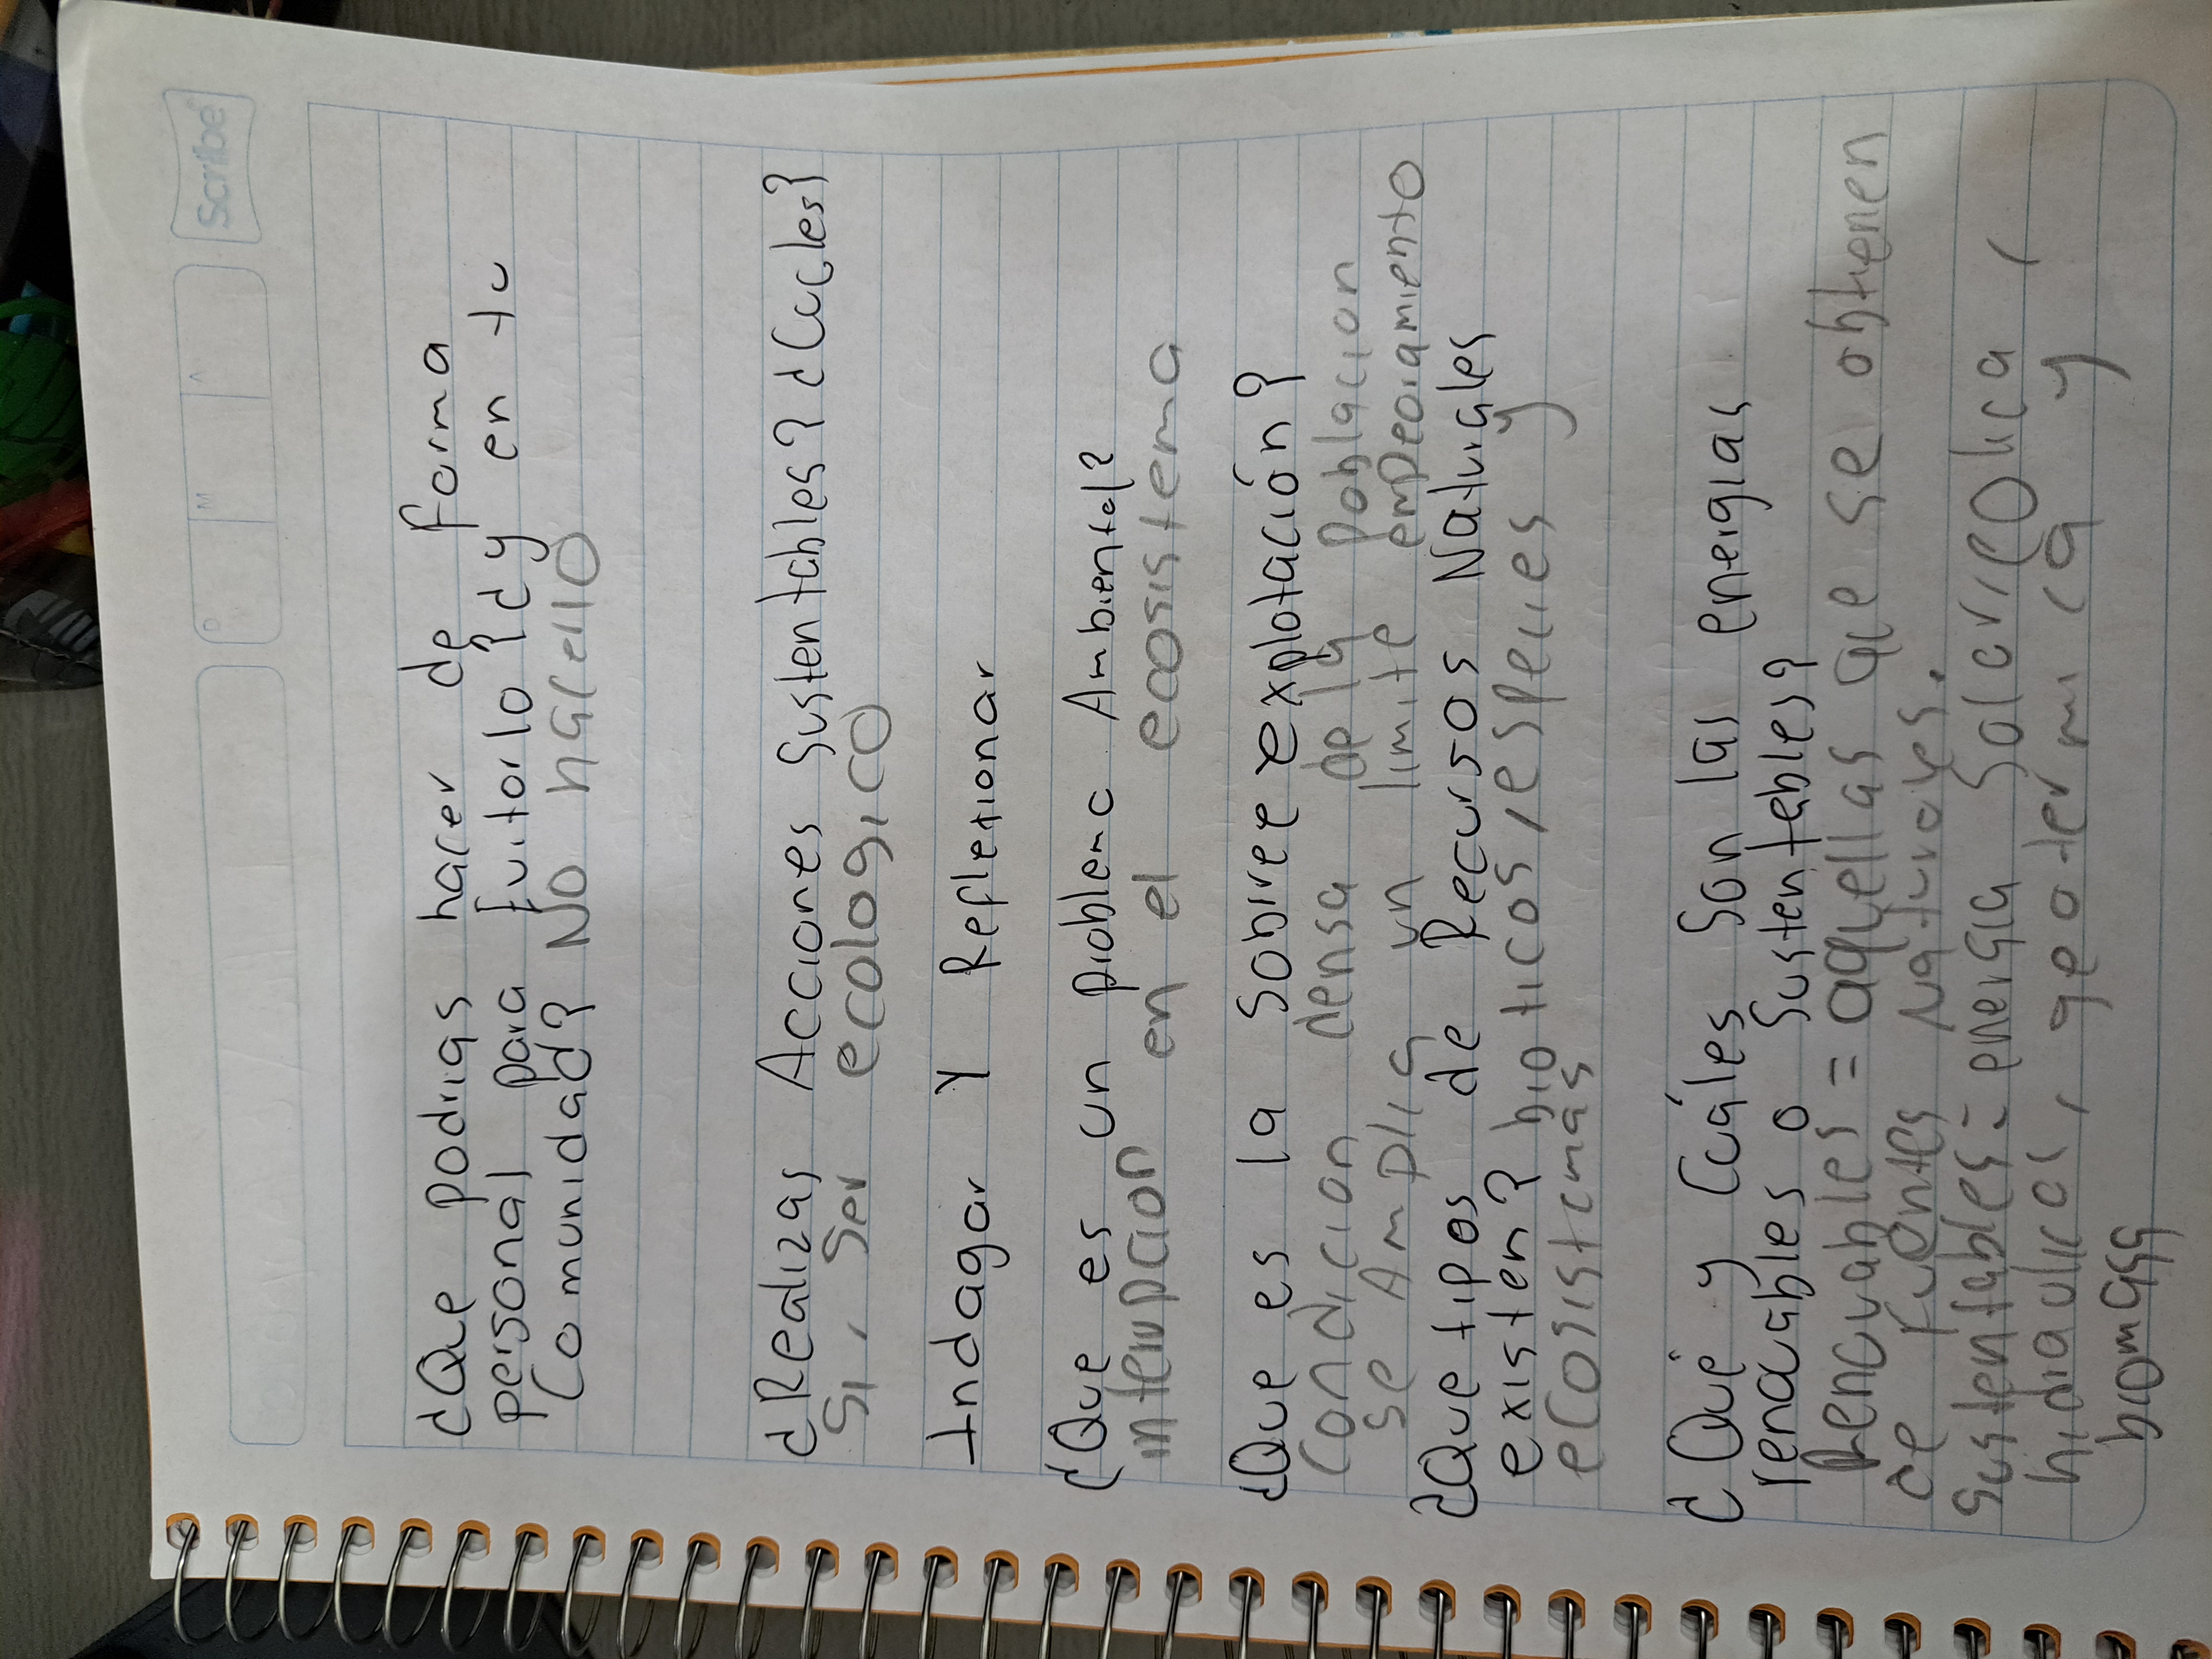 Scribe
D M A
¿Que podrias hacer de forma
personal para evitarlo? ¿y en tu
Comunidad? No hacello
¿Realizas Acciones Sustentables? ¿Cuales?
Si, Ser ecologico
Indagar y Reflexionar
¿Que es un problema Ambiental?
interrupcion en el ecosistema
¿Que es la sobre explotación?
Condicion densa de la poblacion
se Amplia un limite empeoramiento
¿Que tipos de Recursos Naturales
existen? bioticos, especies y
ecosistemas
¿Qué y Cuáles Son las energias
renovables o Sustentables?
Renovables = aquellas que se obtienen
de Fuentes naturales.
Sustentables = energia Solar, eolica,
hidraulica, geotermica y
biomasa